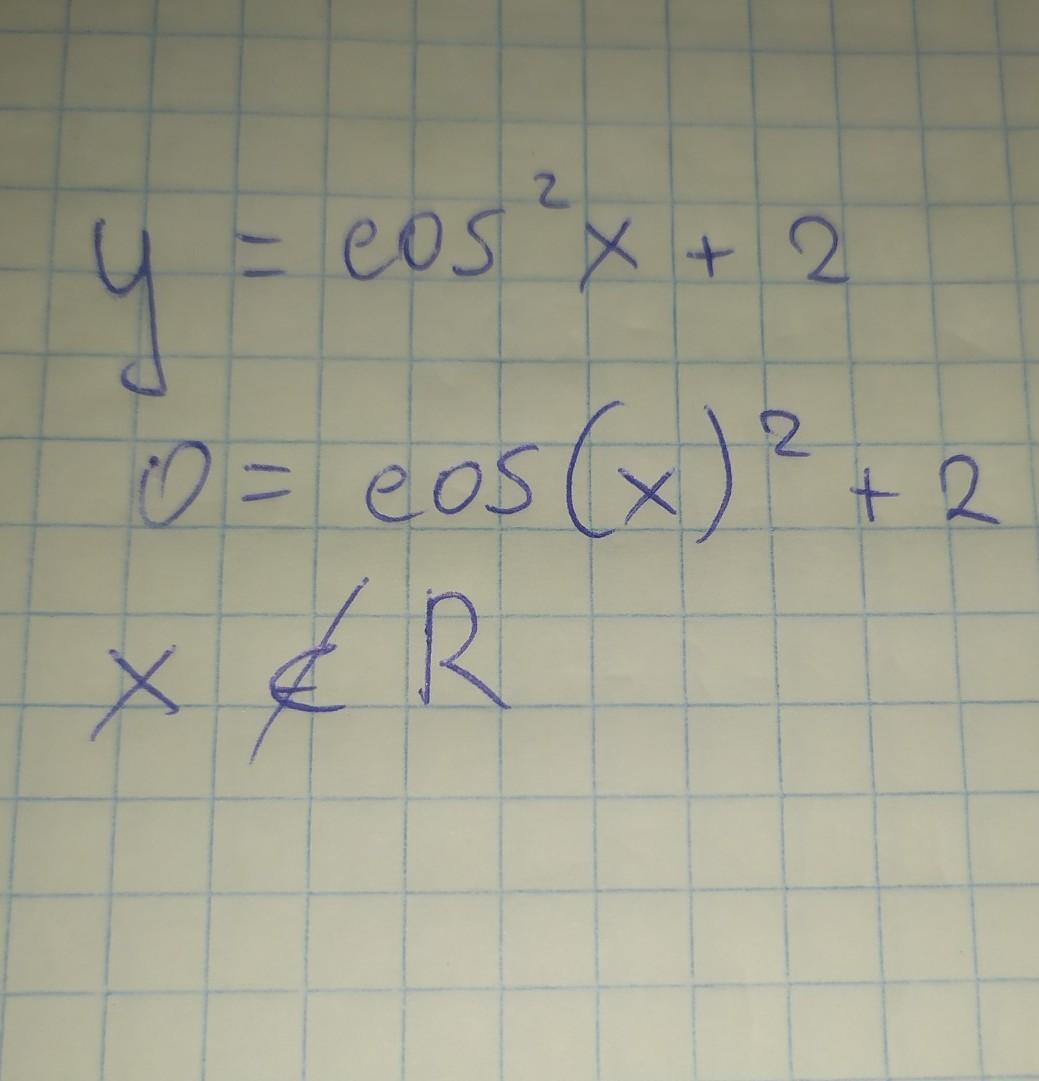 y = cos²x + 2
0 = cos(x)² + 2
x ∉ R